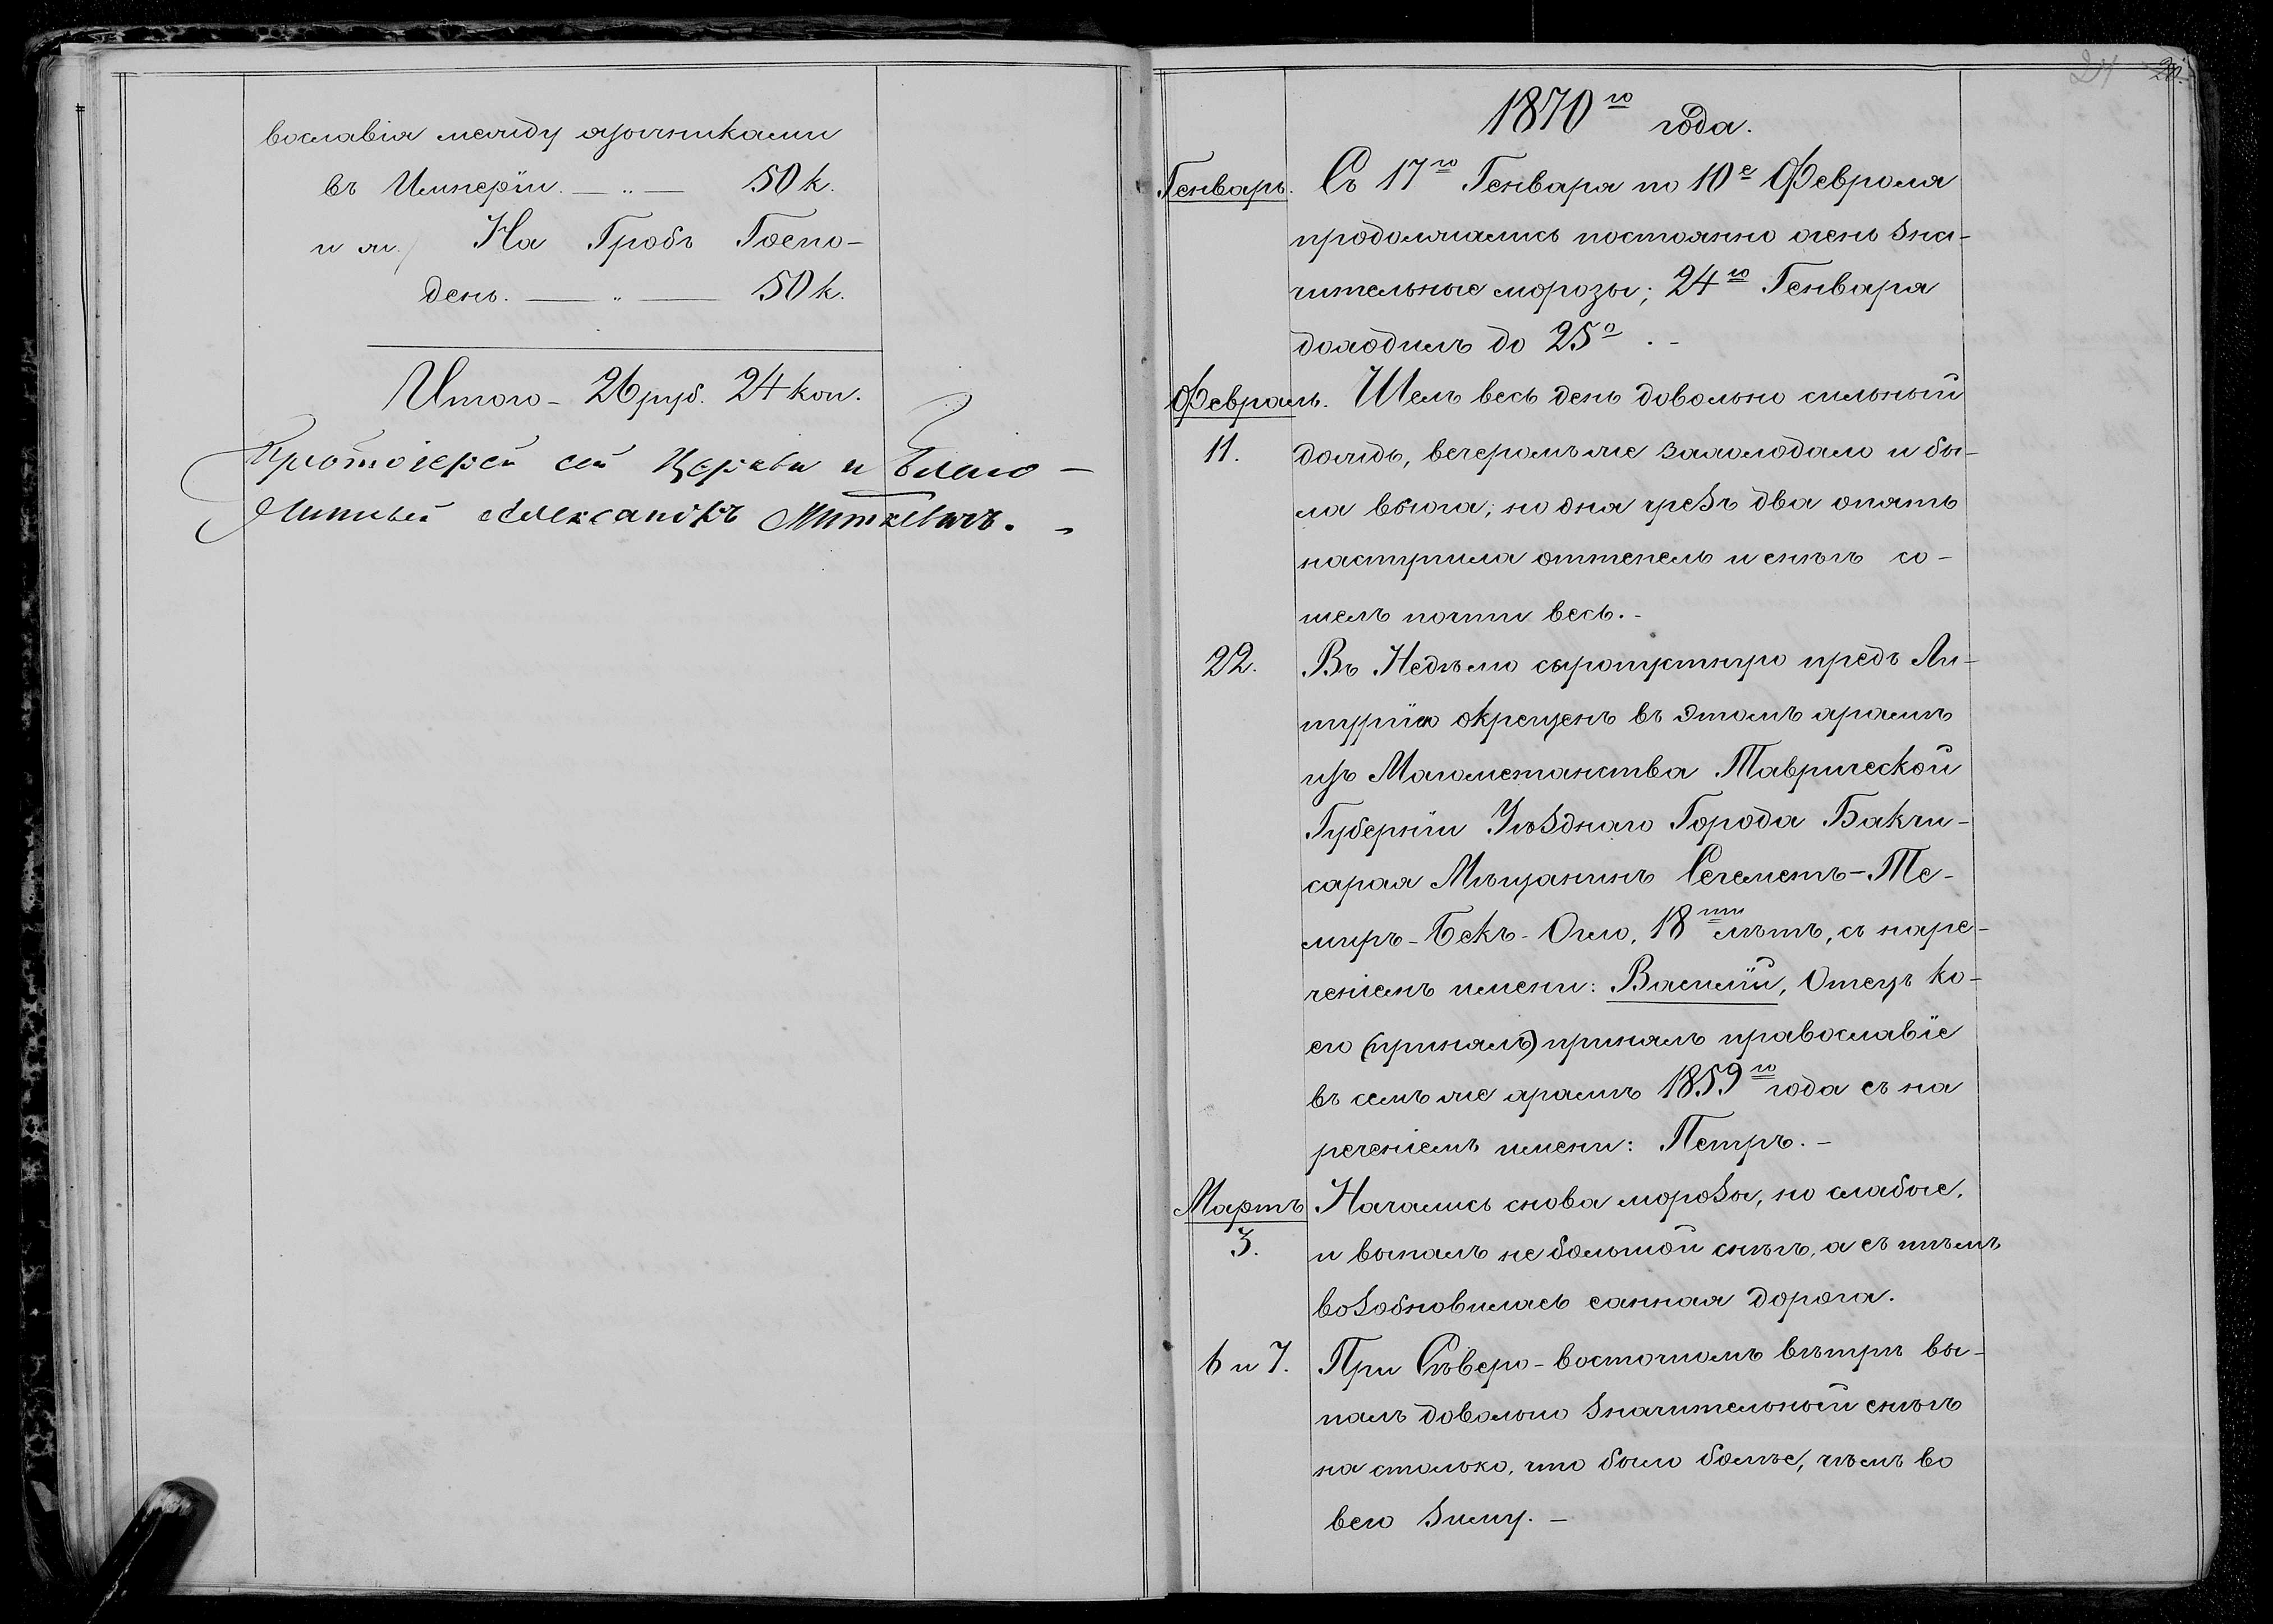 вославія между язычниками
въ Имперіи. — „ — 50 к.
и ж./ На Гробъ Госпо-
день. — „ — 50 к.
Итого - 26 руб. 24 коп.
Протоіерей сей Церкви и Благо-
чинный Александръ Миткевичъ. -
24
1870го года.
Генварь. Съ 17го Генваря по 10е Февраля
продолжались постоянно очень зна-
чительные морозы; 24го Генваря
доходилъ до 25о . -
Февраль. Шелъ весь день довольно сильный
11. дождь, вечеромъ же захолодало и бы-
ла вьюга; но дня чрезъ два опять
наступила оттепель и снѣгъ со-
шелъ почти весь. -
22. Въ Недѣлю сыропустную предъ Ли-
тургіею окрещенъ въ этомъ храмѣ
изъ Магометанства Таврической
Губерніи Уѣзднаго Города Бакчи-
сарая Мѣщанинъ Сеземетъ-Те-
миръ-Бекъ-Оглю, 18ти лѣтъ, съ наре-
ченіемъ имени: Василій, Отецъ ко-
его (принялъ) принялъ православіе
въ семъ же храмѣ 1859го года съ на
реченіемъ имени: Петръ. -
Мартъ Начались снова морозы, но слабые,
3. и выпалъ не большой снѣгъ, а съ тѣмъ
возобновилась санная дорога.
6 и 7. При Сѣверо-восточномъ вѣтрѣ вы-
палъ довольно значительный снѣгъ
на столько, что было болѣе, чѣмъ во
всю зиму. -